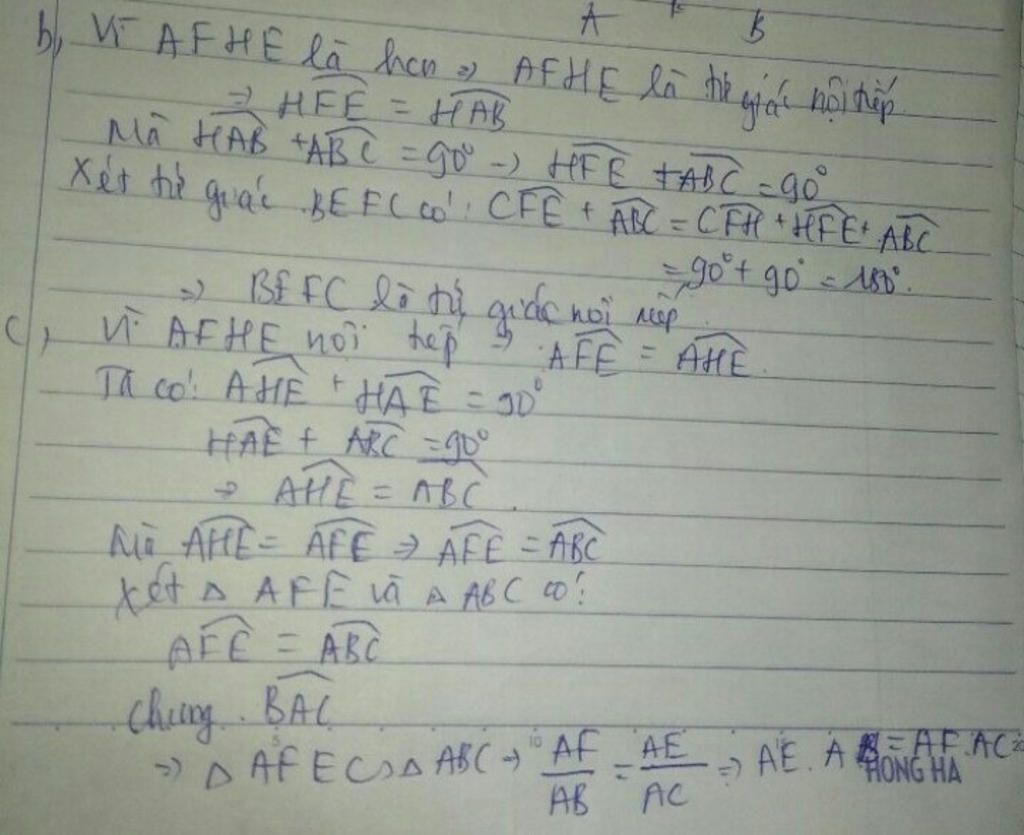 A F B
b, Vì AFHE là hcn => AFHE là tứ giác nội tiếp
=> HFE = HAB
Mà HAB + ABC = 90° -> HFE + ABC = 90°
Xét tứ giác BEFC có: CFE + ABC = CFH + HFE + ABC
= 90° + 90° = 180°.
=> BEFC là tứ giác nội tiếp.
c, Vì AFHE nội tiếp => AFE = AHE.
Ta có: AHE + HAE = 90°
HAE + ABC = 90°
=> AHE = ABC.
Mà AHE = AFE => AFE = ABC
Xét Δ AFE và Δ ABC có:
AFE = ABC
Chung. BAC
=> Δ AFE ∽ Δ ABC -> AF/AB = AE/AC => AE. AB = AF.AC
HONG HA